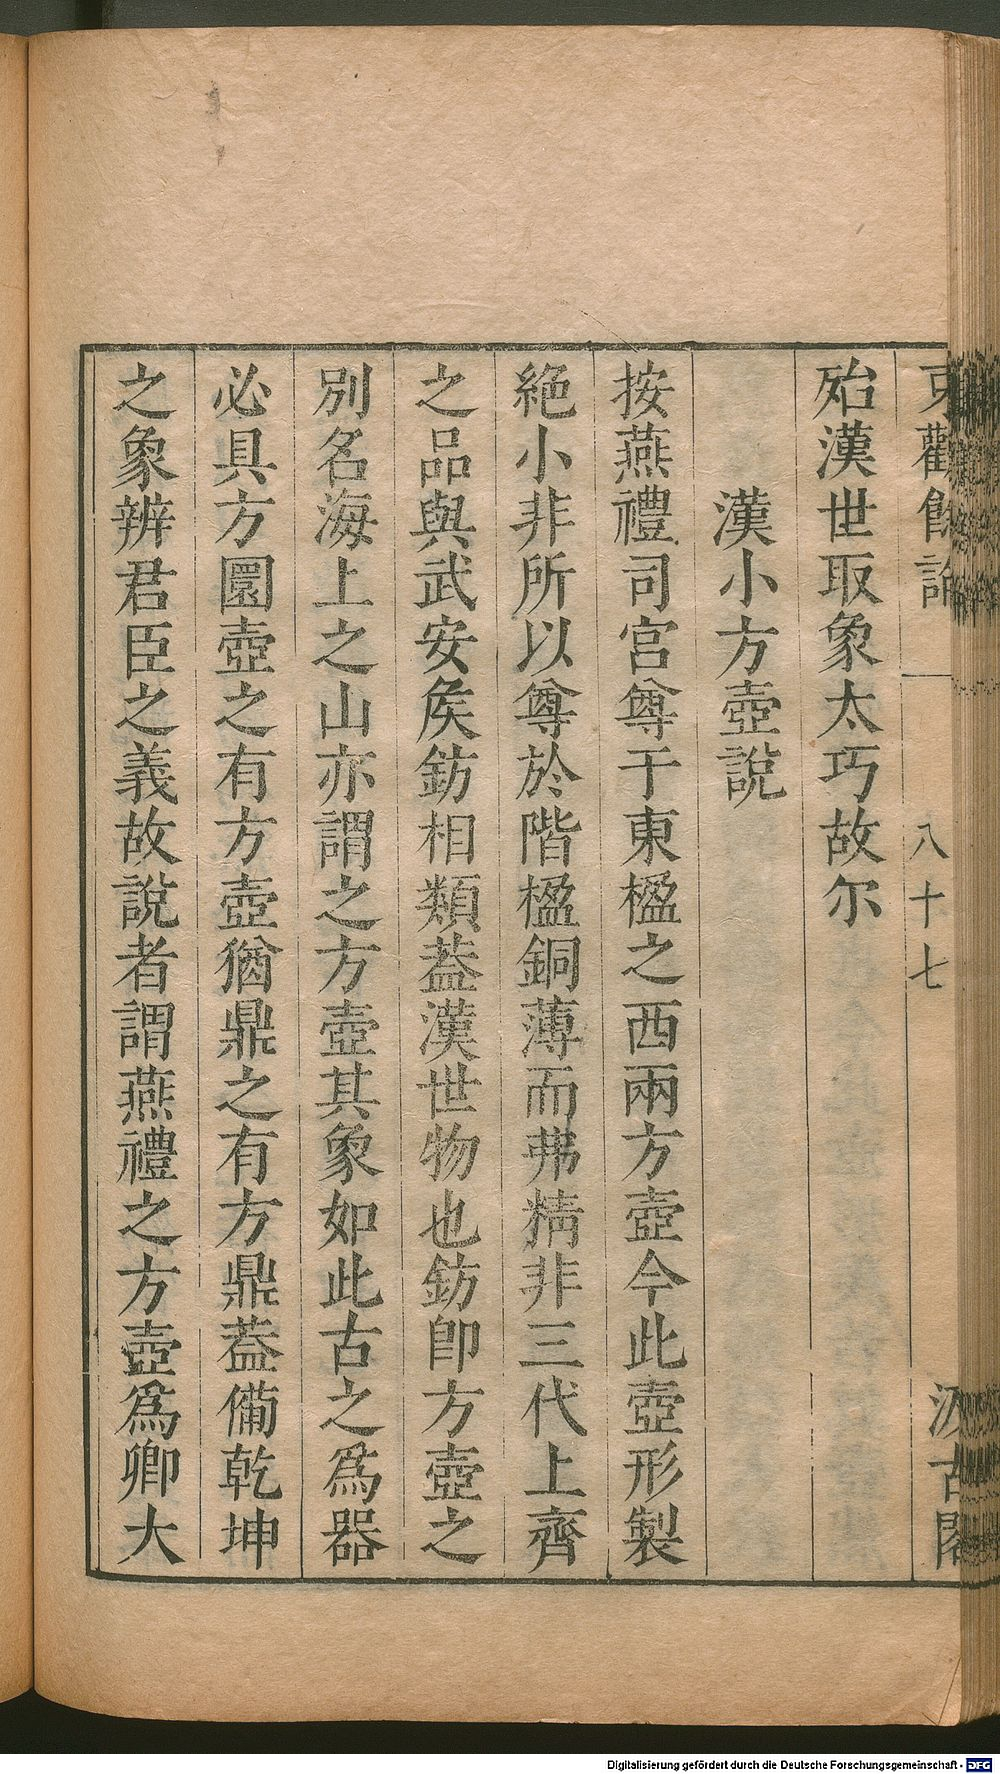 東觀餘論
八十七
汲古閣
殆漢世取象太巧故尔
漢小方壺說
按燕禮司宮尊于東楹之西兩方壺今此壺形製
絕小非所以尊於階楹銅薄而弗精非三代上齊
之品與武安矦鈁相類葢漢世物也鈁卽方壺之
別名海上之山亦謂之方壺其象如此古之爲器
必具方圜壺之有方壺猶鼎之有方鼎葢備乾坤
之象辨君臣之義故說者謂燕禮之方壺爲卿大
Digitalisierung gefördert durch die Deutsche Forschungsgemeinschaft - DFG